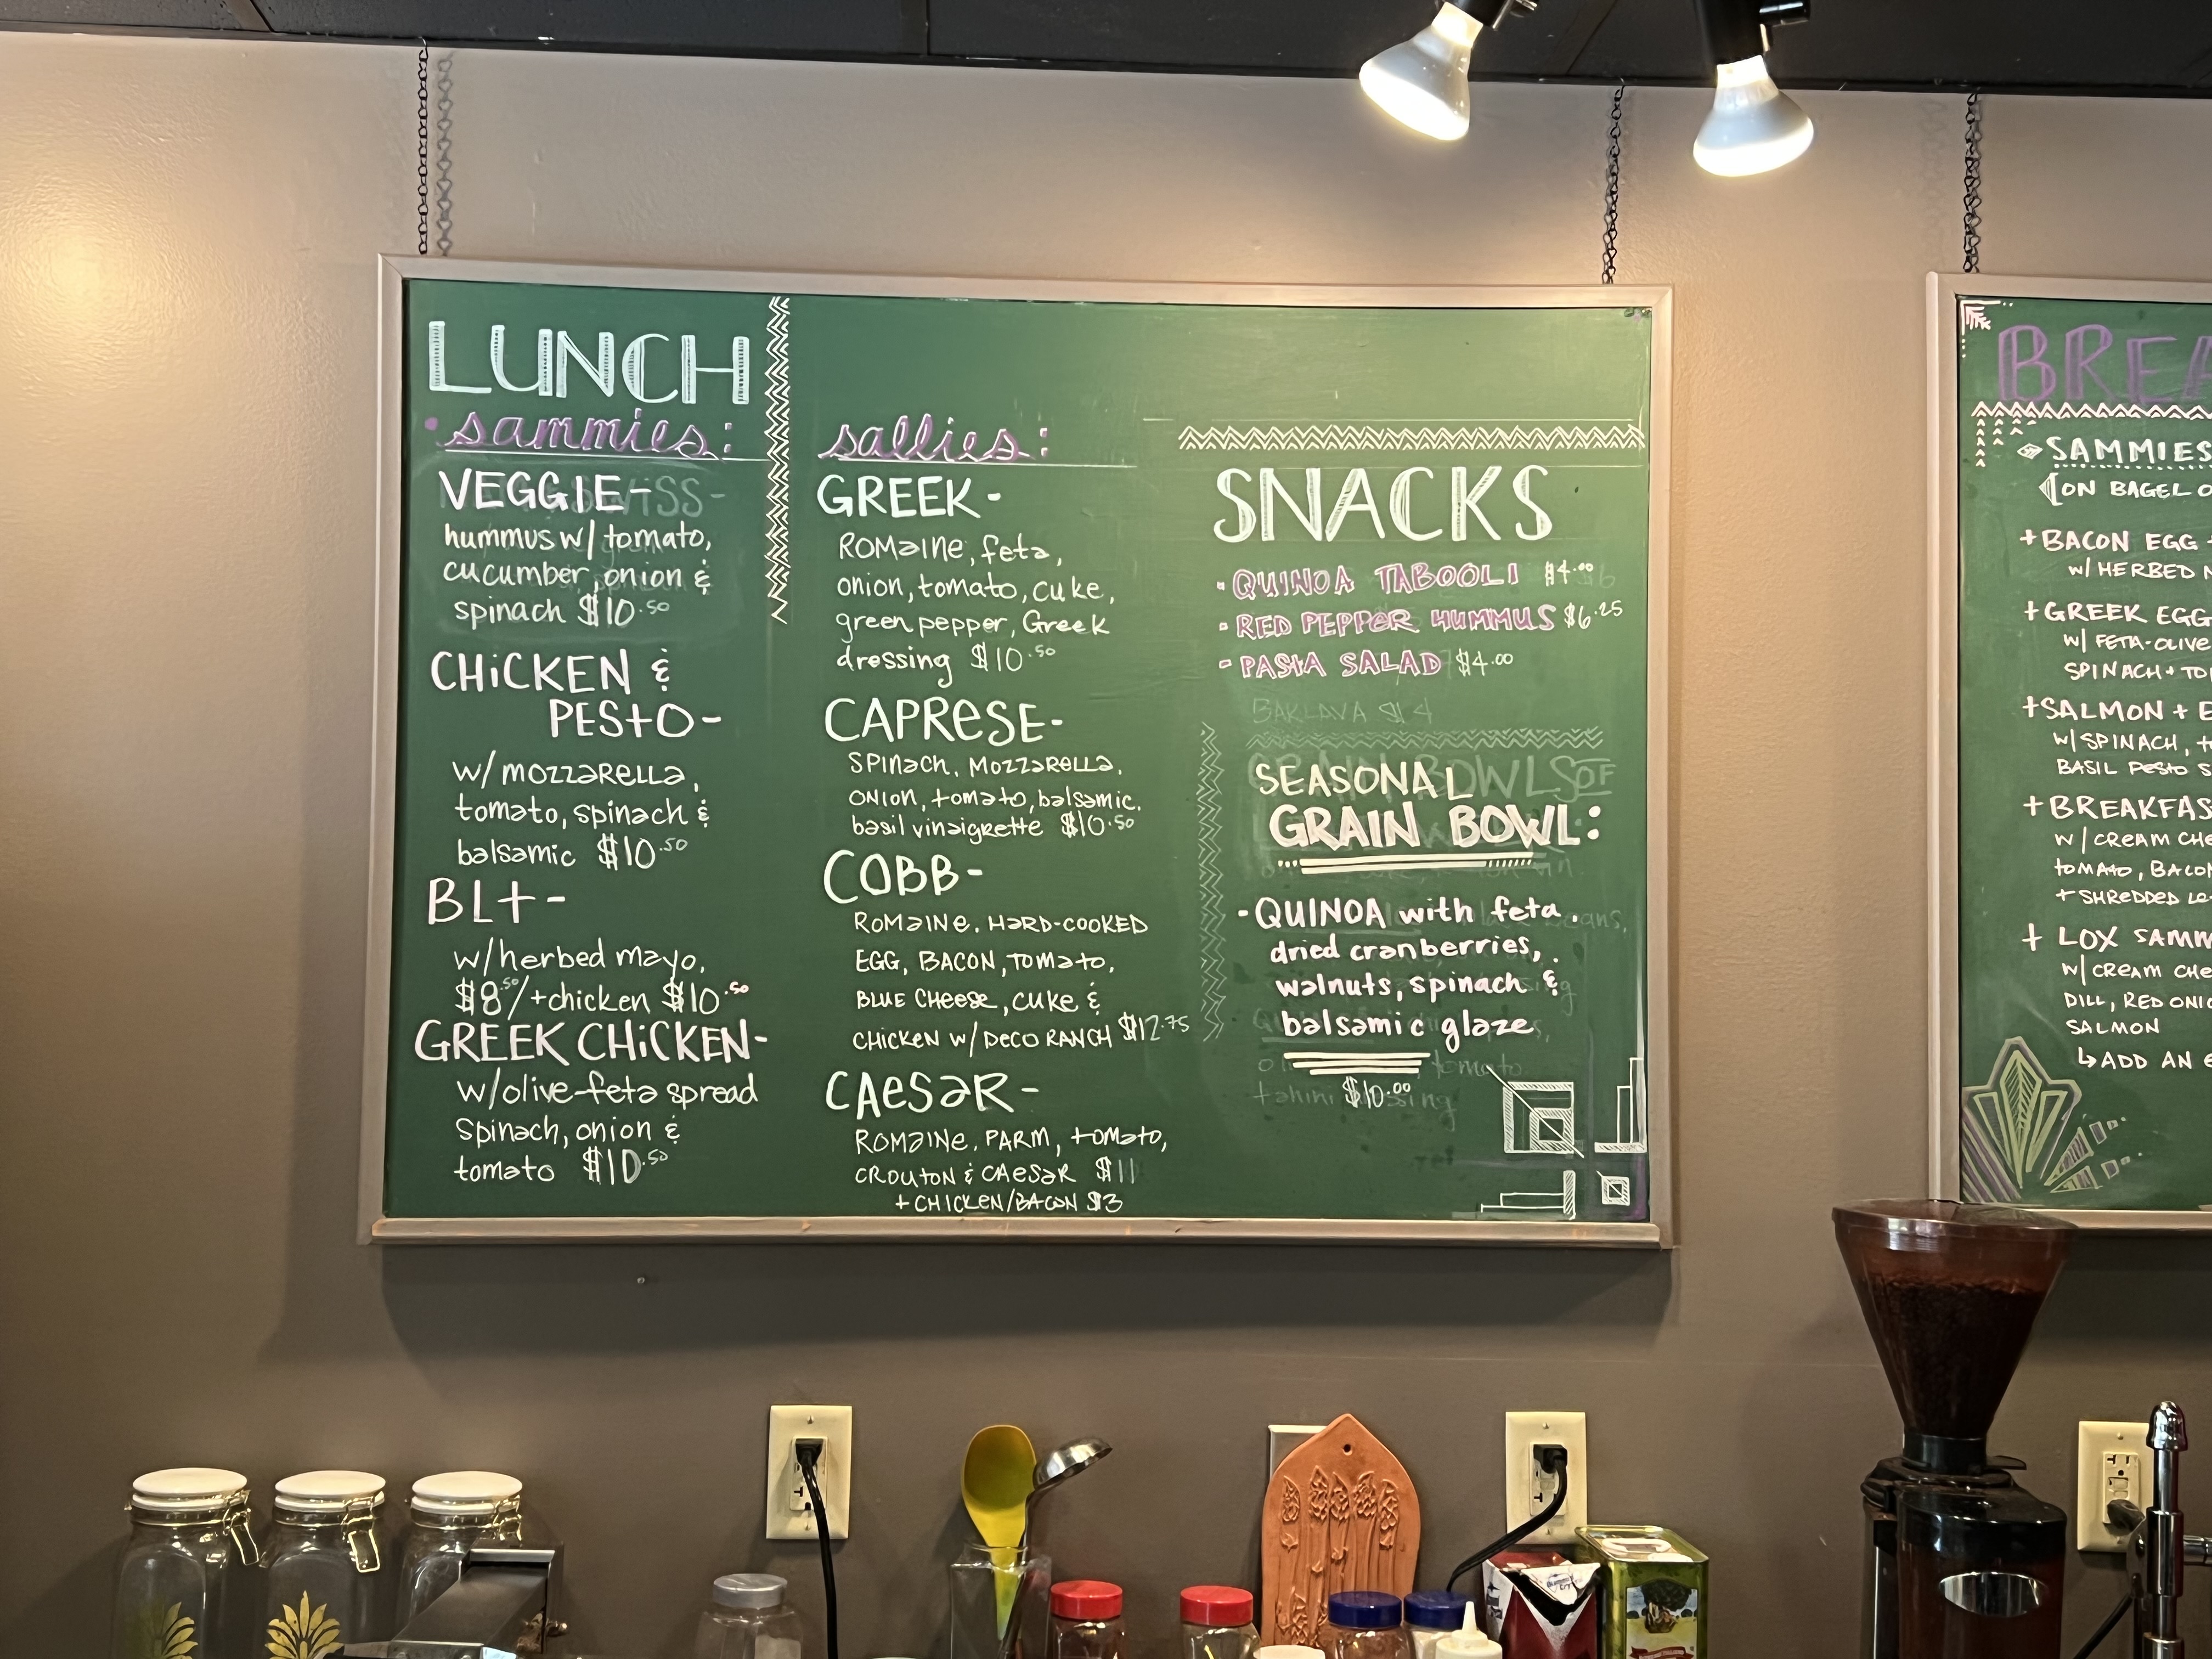 LUNCH
• sammies:
VEGGIE-
hummus w/ tomato,
cucumber, onion &
spinach $10.50
CHiCKEN &
PEStO-
w/ mozzarella,
tomato, spinach &
balsamic $10.50
BLt-
w/herbed mayo,
$8.50/+chicken $10.50
GREEK CHiCKEN-
w/olive-feta spread
spinach, onion &
tomato $10.50
sallies:
GREEK-
ROMaINE, feta,
onion, tomato, cuke,
green pepper, Greek
dressing $10.50
CAPReSE-
SPINach, MOZZaReLLa,
ONION, tomato, balsamic.
basil vinaigrette $10.50
COBB-
ROMaINe, HaRD-COOKED
EGG, BACON, TOMaTO,
BLUE CHeese, CUKe &
CHICKeN W/ DECO RANCH $12.75
CAeSaR-
ROMaINe, PARM, tOMatO,
CROUTON & CAeSaR $11
+ CHICKEN/BACON $3
SNACKS
• QUINOA TABOOLI $4.00
• RED PEPPeR HUMMUS $6.25
- PAStA SALAD $4.00
BAKLAVA $4
SEASONAL
GRAIN BOWL:
- QUINOA with feta.
dried cranberries,
walnuts, spinach &
balsamic glaze
$10.00
BREA
SAMMIES
ON BAGEL O
+ BACON EGG
W/ HERBED
+ GREEK EGG
W/ FETA-OLIVE
SPINACH + TO
+ SALMON + E
W/ SPINACH,
BASIL PeStO S
+ BREAKFAS
W/ CREAM CHE
tOMAtO, BACON
+ SHREDDED
+ LOX SAMM
W/ CREAM CHE
DILL, RED ONIO
SALMON
↳ ADD AN